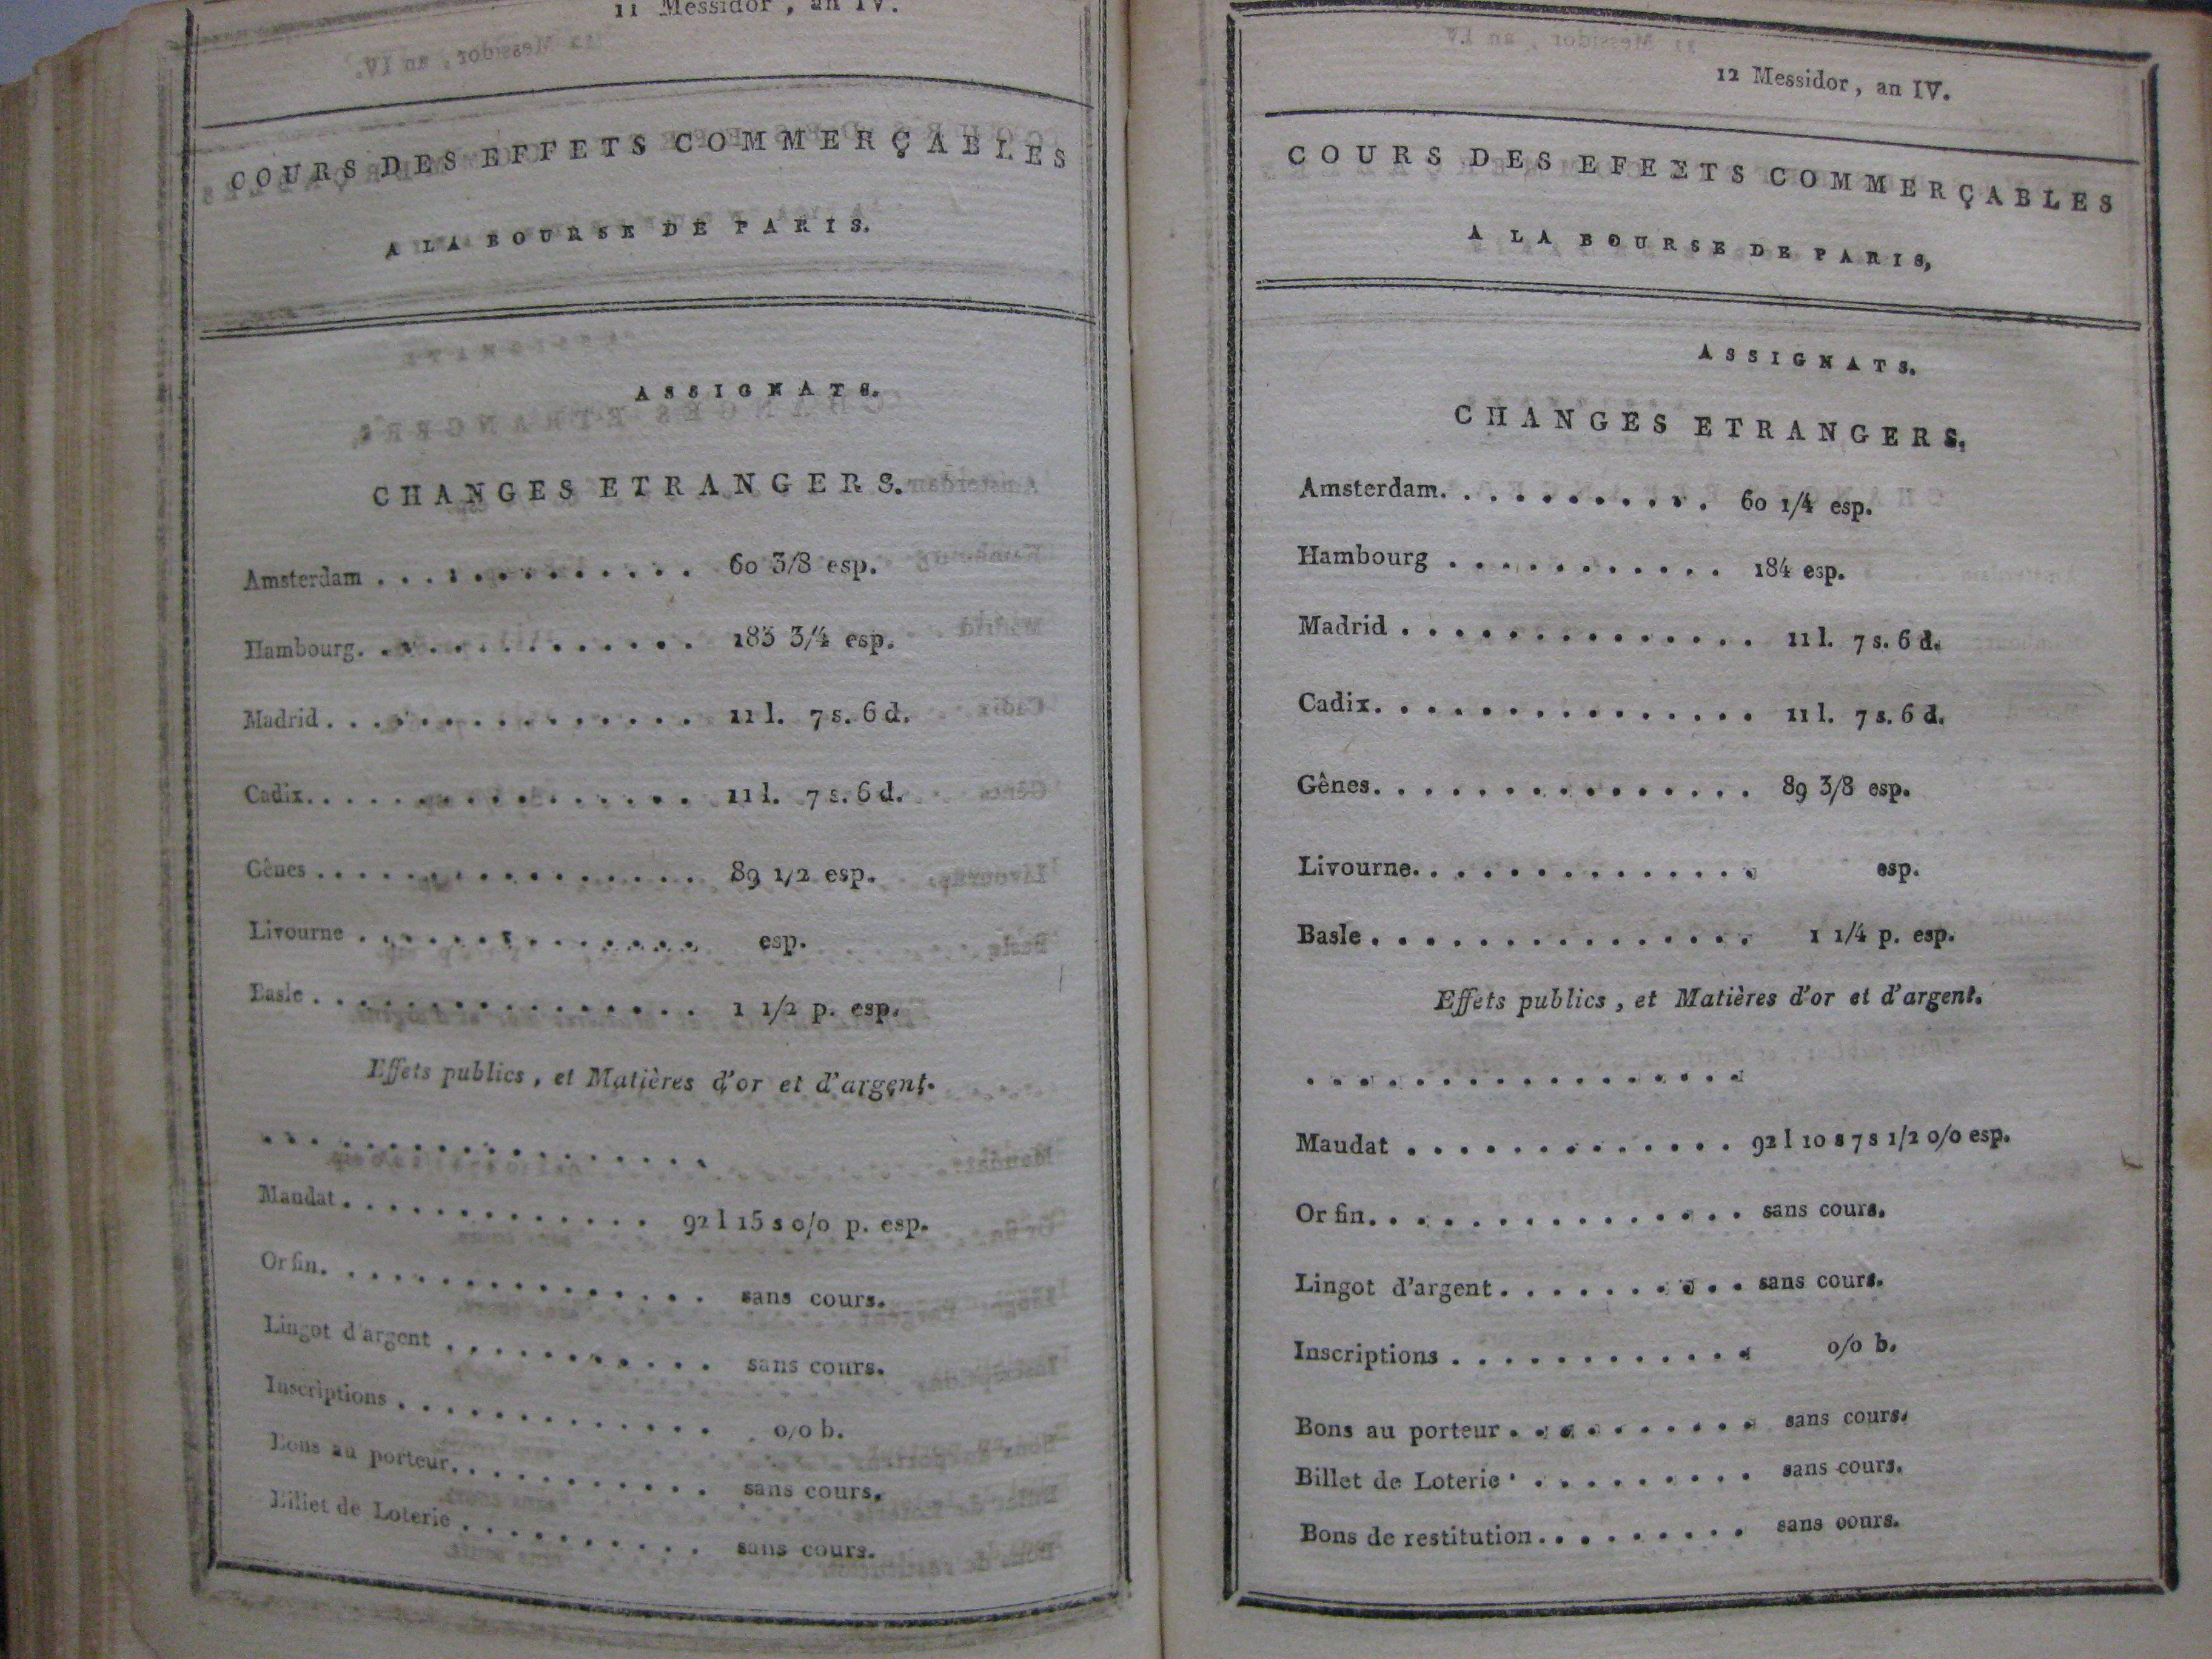 11 Messidor, an IV.
COURS DES EFFETS COMMERÇABLES
A LA BOURSE DE PARIS.
ASSIGNATS.
CHANGES ETRANGERS.
Amsterdam . . . . . . . . . . . . 60 3/8 esp.
Hambourg. . . . . . . . . . . . . 183 3/4 esp.
Madrid . . . . . . . . . . . . . . 11 l. 7 s. 6 d.
Cadix. . . . . . . . . . . . . . . 11 l. 7 s. 6 d.
Gênes . . . . . . . . . . . . . . . 89 1/2 esp.
Livourne . . . . . . . . . . . . . esp.
Basle . . . . . . . . . . . . . . . 1 1/2 p. esp.
Effets publics, et Matières d'or et d'argent.
. . . . . . . . . . . . . . . . .
Mandat . . . . . . . . . . . . 92 l 15 s 0/0 p. esp.
Or fin. . . . . . . . . . . . . . . sans cours.
Lingot d'argent . . . . . . . . . . . sans cours.
Inscriptions . . . . . . . . . . . . . 0/0 b.
Bons au porteur. . . . . . . . . . . sans cours.
Billet de Loterie . . . . . . . . . . sans cours.
12 Messidor, an IV.
COURS DES EFEETS COMMERÇABLES
A LA BOURSE DE PARIS,
ASSIGNATS.
CHANGES ETRANGERS,
Amsterdam. . . . . . . . . . . 60 1/4 esp.
Hambourg . . . . . . . . . . . 184 esp.
Madrid . . . . . . . . . . . . . . 11 l. 7 s. 6 d.
Cadix. . . . . . . . . . . . . . . 11 l. 7 s. 6 d.
Gênes. . . . . . . . . . . . . . . 89 3/8 esp.
Livourne. . . . . . . . . . . . . . esp.
Basle . . . . . . . . . . . . . . . 1 1/4 p. esp.
Effets publics, et Matières d'or et d'argent.
. . . . . . . . . . . . . . . . .
Maudat . . . . . . . . . . . . . 92 l 10 s 7 s 1/2 0/0 esp.
Or fin. . . . . . . . . . . . . . . sans cours.
Lingot d'argent . . . . . . . . . . sans cours.
Inscriptions . . . . . . . . . . . . 0/0 b.
Bons au porteur . . . . . . . . . . sans cours.
Billet de Loterie . . . . . . . . . . sans cours.
Bons de restitution . . . . . . . . . sans oours.